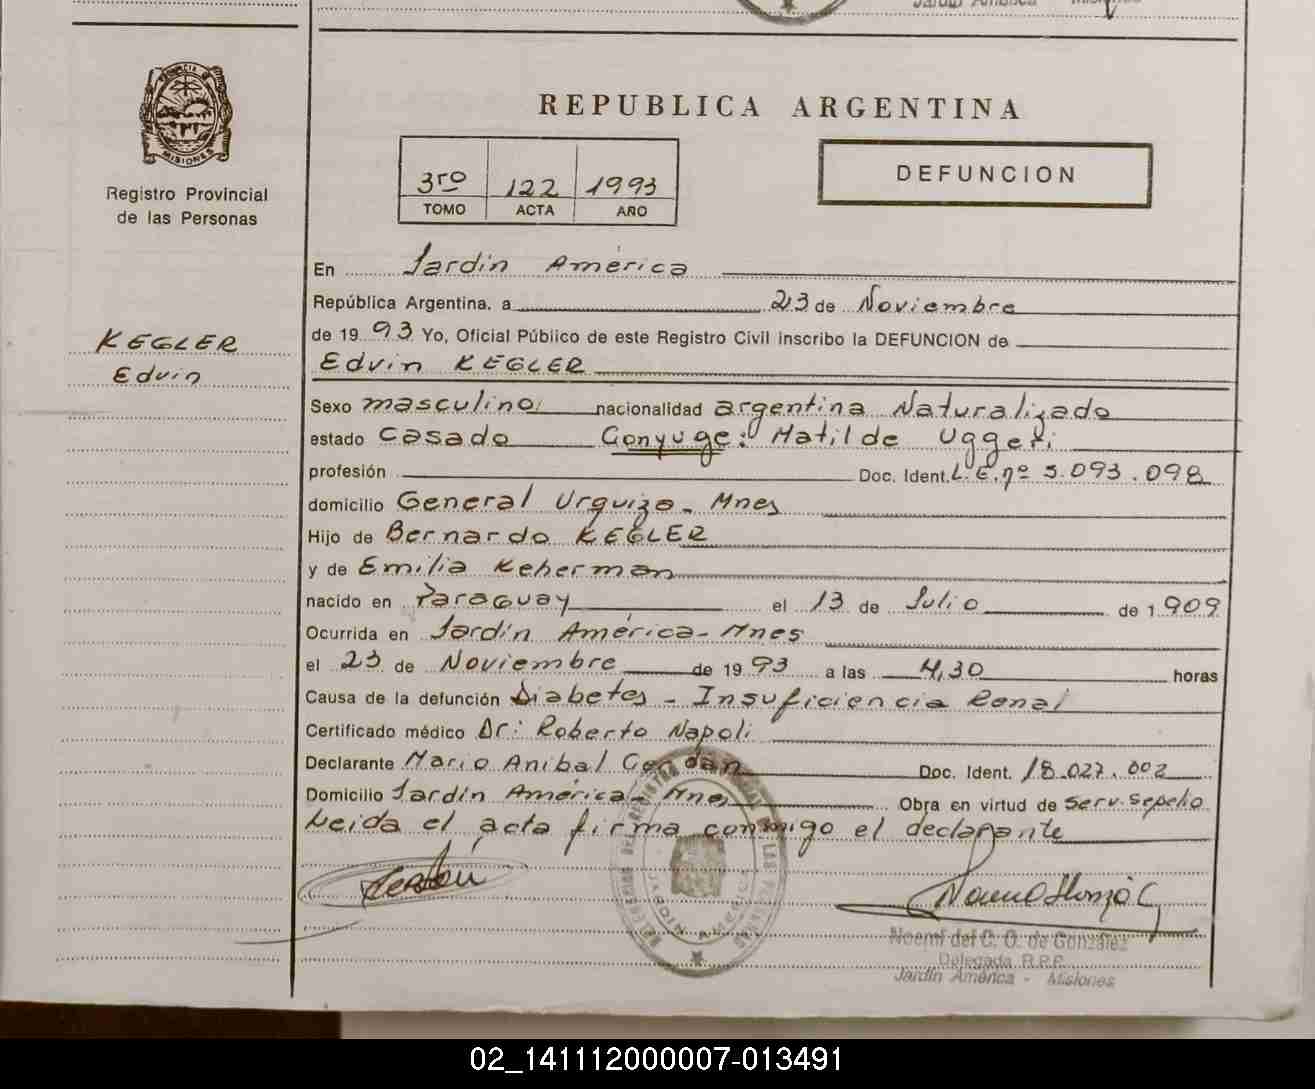 Jardín América Misiones
MISIONES
Registro Provincial
de las Personas
REPUBLICA ARGENTINA
3ro 122 1993
TOMO ACTA AÑO
DEFUNCION
En Jardín América
República Argentina. a 23 de Noviembre
KEGLER
Edvin
de 1993 Yo, Oficial Público de este Registro Civil inscribo la DEFUNCION de
Edvin KEGLER
Sexo masculino nacionalidad argentina Naturalizado
estado casado Conyuge: Matilde Uggeri
profesión Doc. Ident. L.E. nº 5.093.098
domicilio General Urquiza - Mnes
Hijo de Bernardo KEGLER
y de Emilia Keherman
nacido en Paraguay el 13 de Julio de 1.909
Ocurrida en Jardín América - Mnes
el 23 de Noviembre de 1993 a las 4,30 horas
Causa de la defunción Diabetes - Insuficiencia Renal
Certificado médico Dr: Roberto Napoli
Declarante Mario Anibal Doc. Ident. 18.027.002
Domicilio Jardín América, Mnes Obra en virtud de serv. sepelio
Leida el acta firma conmigo el declarante
JARDIN AMERICA
Noemí del C. O. de González
Delegada R.P.P.
Jardín América - Misiones
02_141112000007-013491